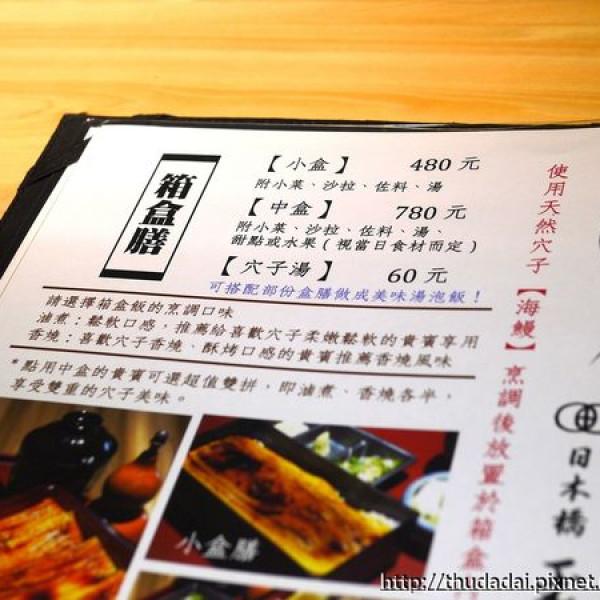 箱盒膳
【小盒】 480 元
附小菜、沙拉、佐料、湯
【中盒】 780 元
附小菜、沙拉、佐料、湯、
甜點或水果(視當日食材而定)
【穴子湯】 60 元
可搭配部份盒膳做成美味湯泡飯!
請選擇箱盒飯的烹調口味
滷煮:鬆軟口感,推薦給喜歡穴子柔嫩鬆軟的貴賓享用
香燒:喜歡穴子香燒、酥烤口感的貴賓推薦香燒風味
*點用中盒的貴賓可選超值雙拼,即滷煮、香燒各半,
享受雙重的穴子美味。
使用天然穴子【海鰻】烹調後放置於箱盒
日本橋
小盒膳
http://thudadai.pixnet.